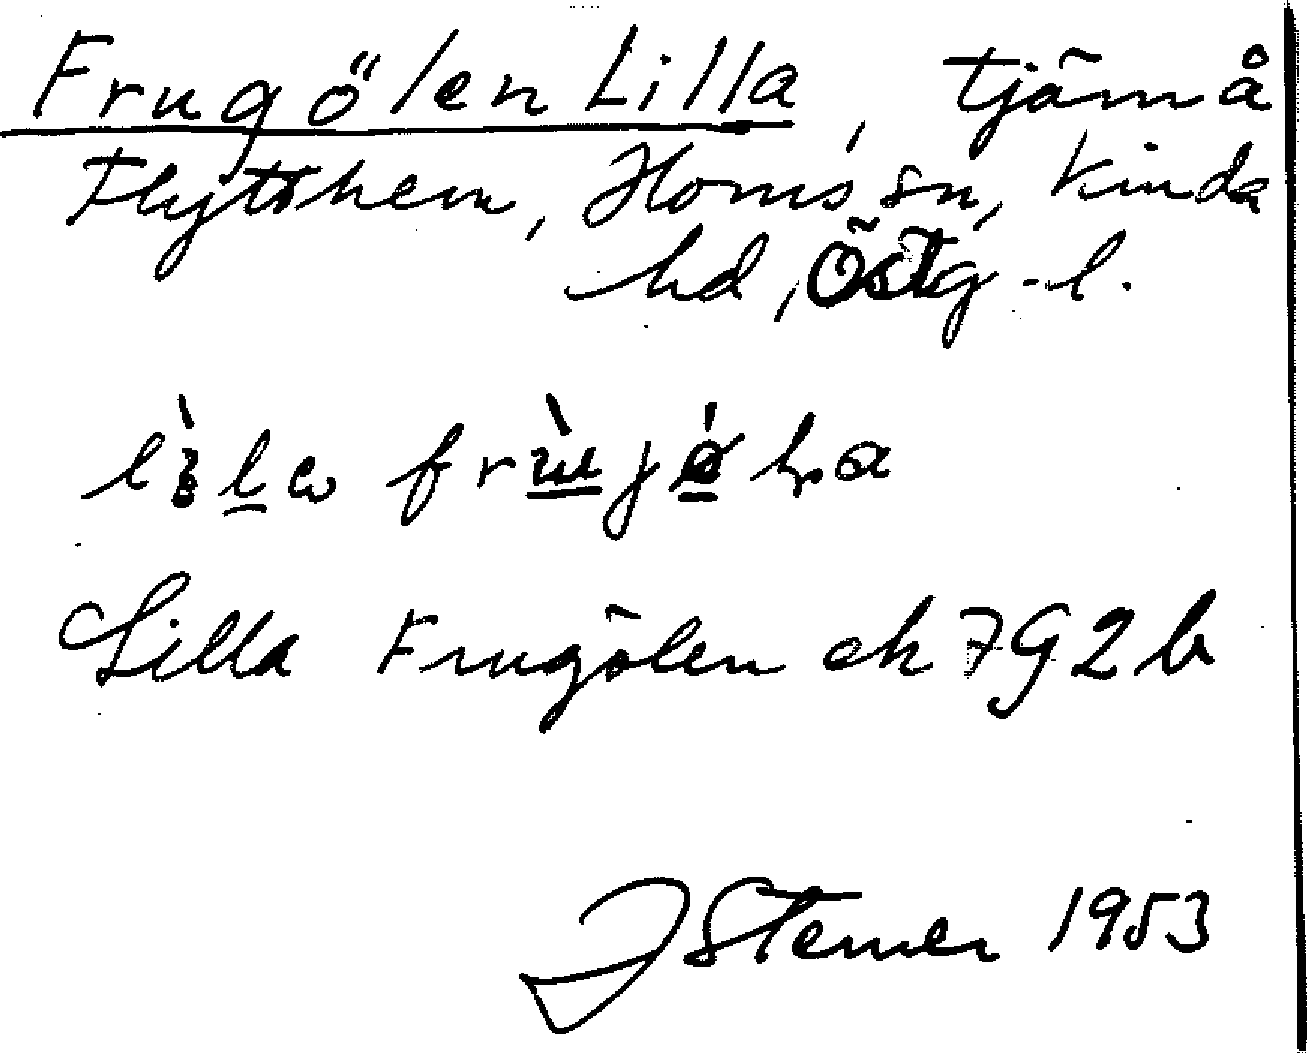 Frugölen Lilla, tjärn å
Flytthem, Horns sn, Kinda
hd, Östg.l.
Lilla Frugölen ek 79 2 b
J Stemer 1953